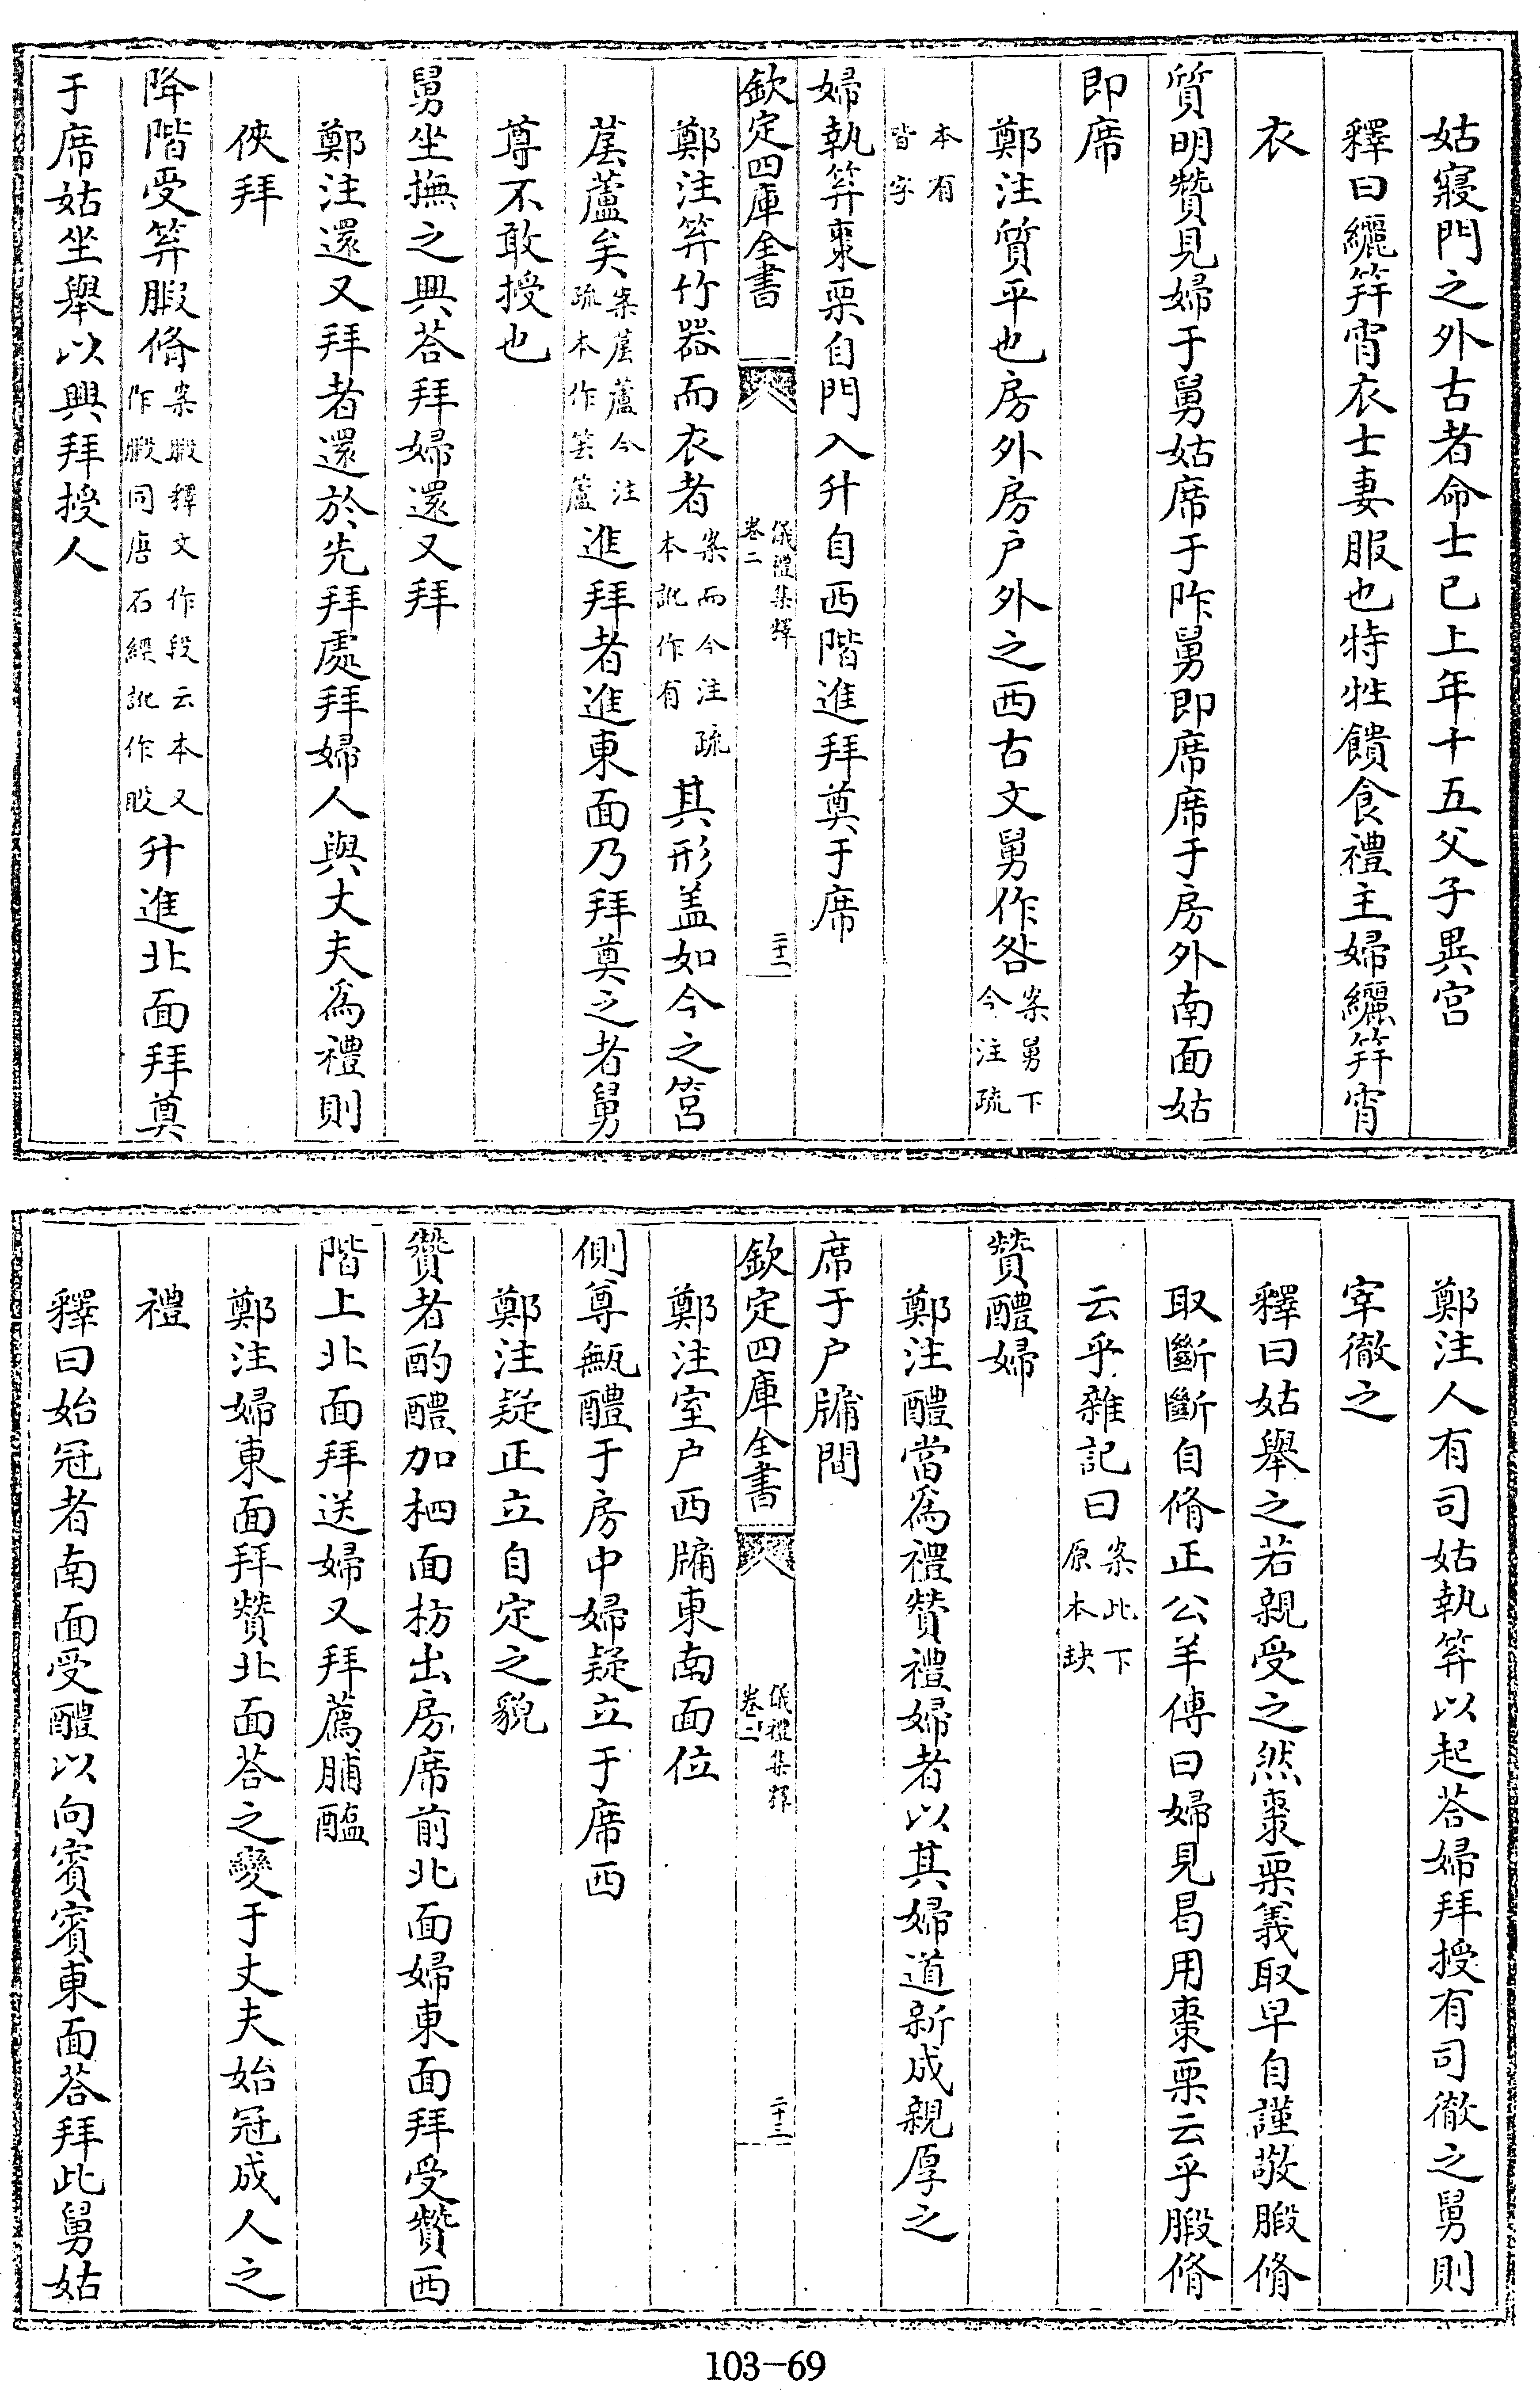 姑寢門之外古者命士已上年十五父子異宮
釋曰纚笄宵衣士妻服也特牲饋食禮主婦纚笄宵
衣
質明贊見婦于舅姑席于阼舅即席席于房外南面姑
即席
鄭注質平也房外房户外之西古文舅作咎案舅下今注疏
本有皆字
婦執笲棗栗自門入升自西階進拜奠于席
欽定四庫全書
儀禮集釋
卷二
二十二
鄭注笲竹器而衣者案而今注疏本訛作有其形蓋如今之筥
𥬔蘆矣案𥬔蘆今注疏本作筥蘆進拜者進東面乃拜奠之者舅
尊不敢授也
舅坐撫之興荅拜婦還又拜
鄭注還又拜者還於先拜處拜婦人與丈夫為禮則
俠拜
降階受笲腶脩案腶釋文作段云本又作腶同唐石經訛作股升進北面拜奠
于席姑坐舉以興拜授人
鄭注人有司姑執笲以起荅婦拜授有司徹之舅則
宰徹之
釋曰姑舉之若親受之然棗栗義取早自謹敬腶脩
取斷斷自脩正公羊傳曰婦見曷用棗栗云乎腶脩
云乎雜記曰案此下原本缺
贊醴婦
鄭注醴當為禮贊禮婦者以其婦道新成親厚之
席于户牖間
欽定四庫全書
儀禮集釋
卷二
二十三
鄭注室户西牖東南面位
側尊甒醴于房中婦疑立于席西
鄭注疑正立自定之貌
贊者酌醴加柶面枋出房席前北面婦東面拜受贊西
階上北面拜送婦又拜薦脯醢
鄭注婦東面拜贊北面荅之變于丈夫始冠成人之
禮
釋曰始冠者南面受醴以向賓賓東面荅拜此舅姑
103-69